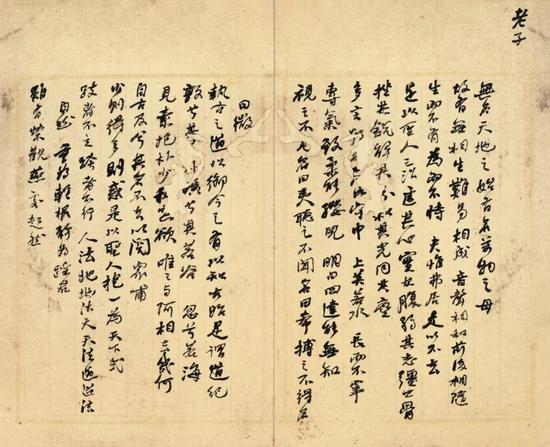 老子
無名天地之始有名萬物之母
故有無相生難易相成音聲相和前後相隨
生而不有為而不恃夫惟弗居是以不去
是以聖人之治虛其心實其腹弱其志彊其骨
挫其銳解其紛和其光同其塵
多言數窮不如守中上善若水長而不宰
專氣致柔能嬰兒明白四達能無知
視之不見名曰夷聽之不聞名曰希搏之不得名
曰微
執古之道以御今之有以知古始是謂道紀
敦兮其若樸曠兮其若谷忽兮若海
見素抱朴少私寡欲唯之與阿相去幾何
自古及今其名不去以閱衆甫
少則得多則惑是以聖人抱一為天下式
跂者不立跨者不行人法地地法天天法道道法
自然重為輕根靜為躁君
雖有榮觀燕處超然